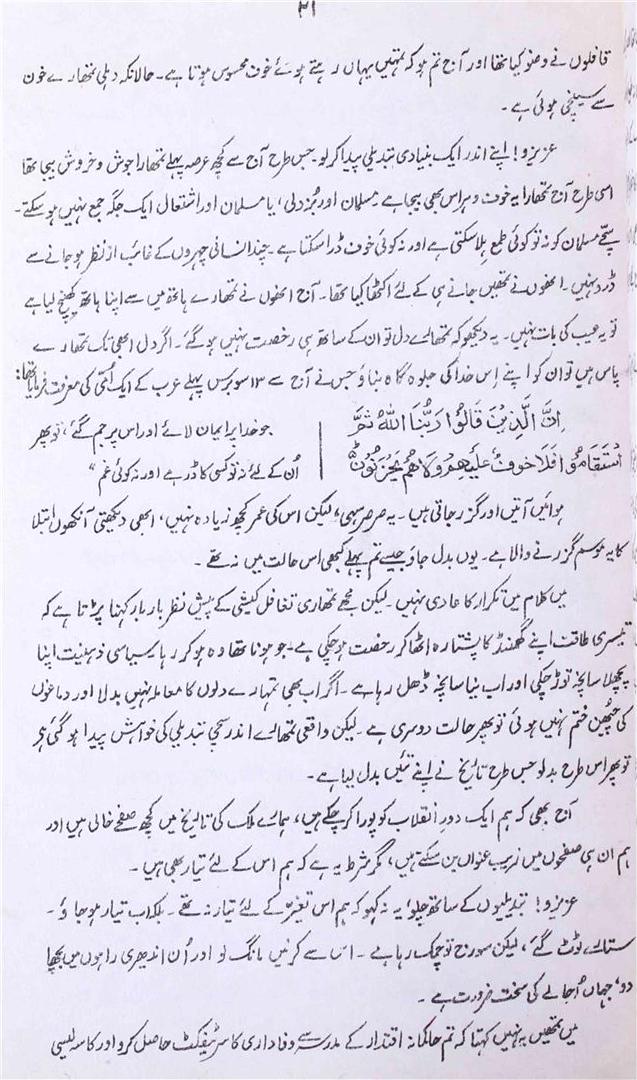 ۳۱
قافلوں نے وضو کیا تھا اور آج تم ہو کہ تمہیں یہاں رہتے ہوئے خوف محسوس ہوتا ہے۔ حالانکہ دہلی تمھارے خون
سے سینچی ہوئی ہے۔
عزیزو! اپنے اندر ایک بنیادی تبدیلی پیدا کر لو۔ جس طرح آج سے کچھ عرصہ پہلے تمھارا جوش و خروش بیجا تھا
اسی طرح آج تمھارا یہ خوف و ہراس بھی بیجا ہے۔ مسلمان اور بُزدلی، یا مسلمان اور اشتعال ایک جگہ جمع نہیں ہو سکتے۔
سچّے مسلمان کو نہ تو کوئی طمع ہلا سکتی ہے اور نہ کوئی خوف ڈرا سکتا ہے۔ چند انسانی چہروں کے غائب از نظر ہو جانے سے
ڈرو نہیں۔ انھوں نے تمھیں جانے ہی کے لئے اکٹھا کیا تھا۔ آج انھوں نے تمھارے ہاتھ میں سے اپنا ہاتھ کھینچ لیا ہے
تو یہ عیب کی بات نہیں۔ یہ دیکھو کہ تمھارے دل تو ان کے ساتھ ہی رخصت نہیں ہو گئے۔ اگر دل ابھی تک تمھارے
پاس ہیں تو ان کو اپنے اس خدا کی جلوہ گاہ بناؤ جس نے آج سے ۱۳ سو برس پہلے عرب کے ایک اُمّی کی معرفت فرمایا تھا:
اِنَّ الَّذِیْنَ قَالُوْا رَبُّنَا اللّٰهُ ثُمَّ
اسْتَقَامُوْا فَلَا خَوْفٌ عَلَیْهِمْ وَلَا هُمْ یَحْزَنُوْنَ
جو خدا پر ایمان لائے اور اس پر جم گئے، تو پھر
اُن کے لئے نہ تو کسی کا ڈر ہے اور نہ کوئی غم"
ہوائیں آتیں اور گزر جاتی ہیں۔ یہ صرصر سہی، لیکن اس کی عمر کچھ زیادہ نہیں، ابھی دیکھتی آنکھوں ابتلا
کا یہ موسم گزرنے والا ہے۔ یوں بدل جاؤ جیسے تم پہلے کبھی اس حالت میں نہ تھے۔
میں کلام میں تکرار کا عادی نہیں۔ لیکن مجھے تمھاری تغافل کیشی کے پیش نظر بار بار کہنا پڑتا ہے کہ
تیسری طاقت اپنے گھمنڈ کا پشتارہ اٹھا کر رخصت ہو چکی ہے۔ جو ہونا تھا وہ ہو کر رہا۔ سیاسی ذہنیت اپنا
پچھلا سانچہ توڑ چکی اور اب نیا سانچہ ڈھل رہا ہے۔ اگر اب بھی تمہارے دلوں کا معاملہ نہیں بدلا اور دماغوں
کی چُبھن ختم نہیں ہوئی تو پھر حالت دوسری ہے۔ لیکن واقعی تمھارے اندر سچی تبدیلی کی خواہش پیدا ہو گئی ہے
تو پھر اس طرح بدلو جس طرح تاریخ نے اپنے تئیں بدل لیا ہے۔
آج بھی کہ ہم ایک دورِ انقلاب کو پورا کر چکے ہیں، ہمارے ملک کی تاریخ میں کچھ صفحے خالی ہیں اور
ہم ان ہی صفحوں میں زیب عنواں بن سکتے ہیں، مگر شرط یہ ہے کہ ہم اس کے لئے تیار بھی ہیں۔
عزیزو! تبدیلیوں کے ساتھ چلو، یہ نہ کہو کہ ہم اس تغیّر کے لئے تیار نہ تھے۔ بلکہ اب تیار ہو جاؤ۔
ستارے ٹوٹ گئے، لیکن سورج تو چمک رہا ہے۔ اس سے کرنیں مانگ لو اور اُن اندھیری راہوں میں بچھا
دو، جہاں اُجالے کی سخت ضرورت ہے۔
میں تمھیں یہ نہیں کہتا کہ تم حاکمانہ اقتدار کے مدرسے سے وفاداری کا سرٹیفکٹ حاصل کرو اور کاسہ لیسی